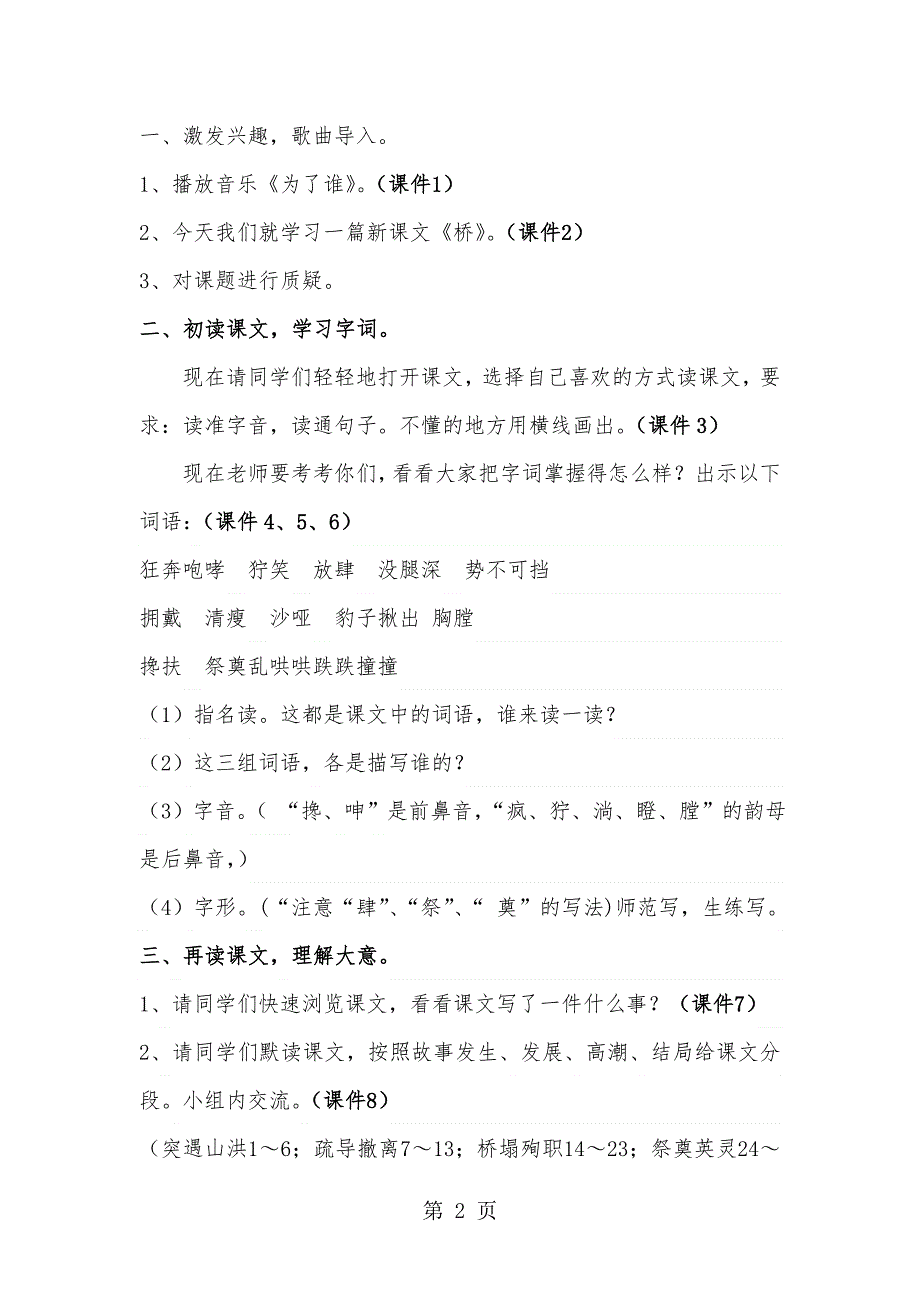 一、激发兴趣，歌曲导入。
1、播放音乐《为了谁》。（课件1）
2、今天我们就学习一篇新课文《桥》。（课件2）
3、对课题进行质疑。
二、初读课文，学习字词。
现在请同学们轻轻地打开课文，选择自己喜欢的方式读课文，要
求：读准字音，读通句子。不懂的地方用横线画出。（课件 3）
现在老师要考考你们，看看大家把字词掌握得怎么样？出示以下
词语：（课件 4、5、6）
狂奔咆哮　狞笑　放肆　没腿深　势不可挡
拥戴　清瘦　沙哑　豹子揪出 胸膛
搀扶　祭奠乱哄哄跌跌撞撞
（1）指名读。这都是课文中的词语，谁来读一读？
（2）这三组词语，各是描写谁的？
（3）字音。（ “搀、呻”是前鼻音，“疯、狞、淌、瞪、膛”的韵母
是后鼻音，）
（4）字形。(“注意“肆”、“祭”、“ 奠”的写法)师范写，生练写。
三、再读课文，理解大意。
1、请同学们快速浏览课文，看看课文写了一件什么事？（课件7）
2、请同学们默读课文，按照故事发生、发展、高潮、结局给课文分
段。小组内交流。（课件8）
（突遇山洪1～6；疏导撤离7～13；桥塌殉职14～23；祭奠英灵24～
第 2 页